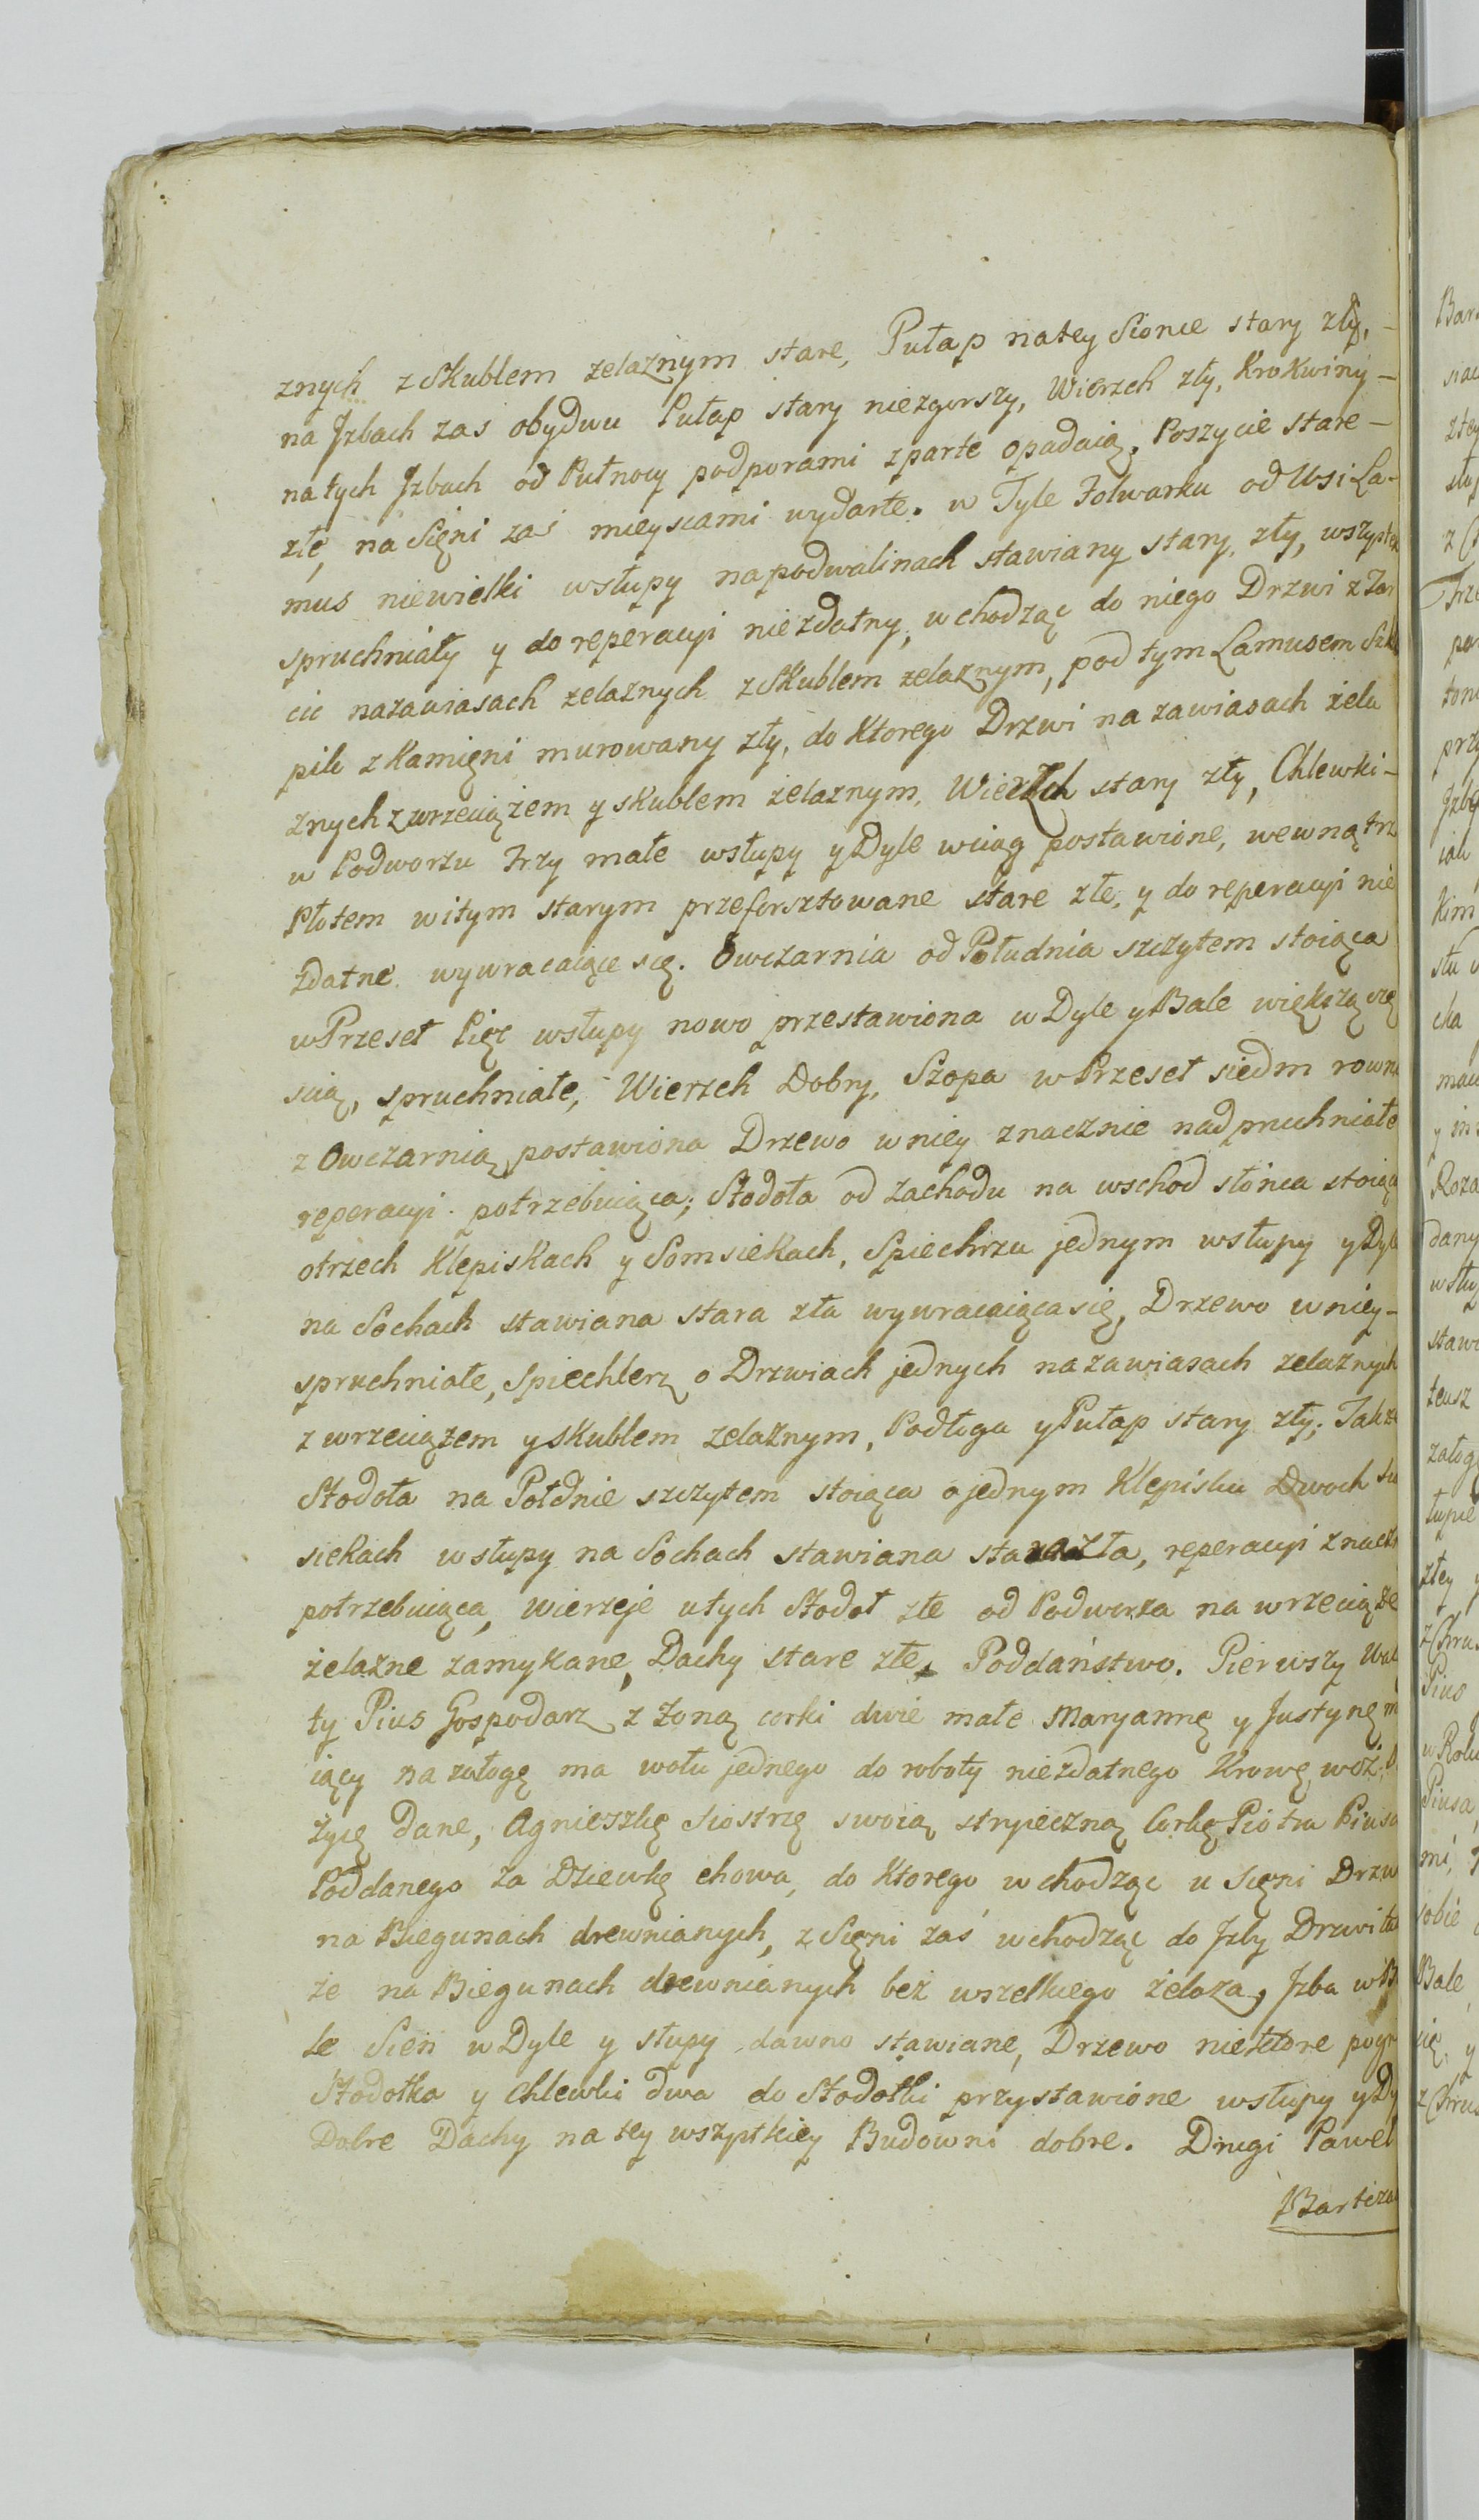 znych z Skublem zelaznym stare, Pułap na tey Sionce stary zły, –
na Jzbach zas obydwu Pułap stary niezgorszy, Wierzch zły, Krokwiny –
na tych Jzbach od Pułnocy podporami zparte opadaią, Poszycie stare –
złe, na Sięni zaś mieyscami wydarte. w Tyle Folwarku od Wsi La-
mus niewielki wsłupy na podwalinach stawiany stary, zły, wszystek
spruchniały y do reperacyi niezdatny, wchodząc do niego Drzwi z Tar
cic na zawiasach zelaznych z Skublem zelaznym, pod tym Lamusem Skle
pik z Kamięni murowany zły, do Ktorego Drzwi na zawiasach żela
znych z wrzeciążem y skublem żelaznym, Wierzch stary zły, Chlewki –
w Podworzu Trzy małe wsłupy y Dyle wciąg postawione, wewnątrz
Płotem witym starym przeforsztowane stare złe, y do reperacyi nie
zdatne wywracaiące się. Owczarnia od Południa szczytem stoiąca
w Przeseł Pięc wsłupy nowo przestawiona w Dyle y Bale większą czę
scią, spruchniałe, Wierzch Dobry, Szopa w Przeseł siedm rowno
z Owczarnią postawiona Drzewo w niey znacznie nadpruchniałe
reperacyi potrzebuiąca; Stodoła od zachodu na wschod słońca stoiąca
o trzech Klepiskach y Somsiekach, Spiechrzu jednym wsłupy y Dyle
na Sochach stawiana stara zła wywracaiąca się, Drzewo w niey –
spruchniałe, Spiechlerz o Drzwiach jednych na zawiasach zelaznych
z wrzeciążem y skublem zelaznym, Podłoga y Pułap stary zły; Takze
Stodoła na Połdnie szczytem stoiąca o jednym Klepisku Dwoch So
siekach wsłupy na Sochach stawiana stara zła, reperacyi znaczn
potrzebuiąca, Wierzeje u tych Stodoł złe od Podworza na wrzeciąże
żelazne zamykane, Dachy stare złe. Poddaństwo. Pierwszy Wal
ty Pius Gospodarz z Żoną corki dwie małe Maryannę y Justynę m
iący na załogę ma wołu jednego do roboty niezdatnego Krowę, woz.
życę dane, Agnieszkę Siostrzę swoią stryieczną Corkę Piotra Piusa
Poddanego za Dziewkę chowa, do Ktorego wchodząc u Sięni Drzw
na Biegunach drewnianych, z Sięni zaś wchodząc do Jzby Drzwi tak
że na Biegunach drewnianych beż wszelkiego żelaza, Jzba w Ba
le Sień w Dyle y słupy dawno stawiane, Drzewo niektore pogn
Stodołka y Chlewki dwa do Stodołki przystawione wsłupy y Dy
Dobre Dachy na tey wszystkiey Budowni dobre. Drugi Paweł